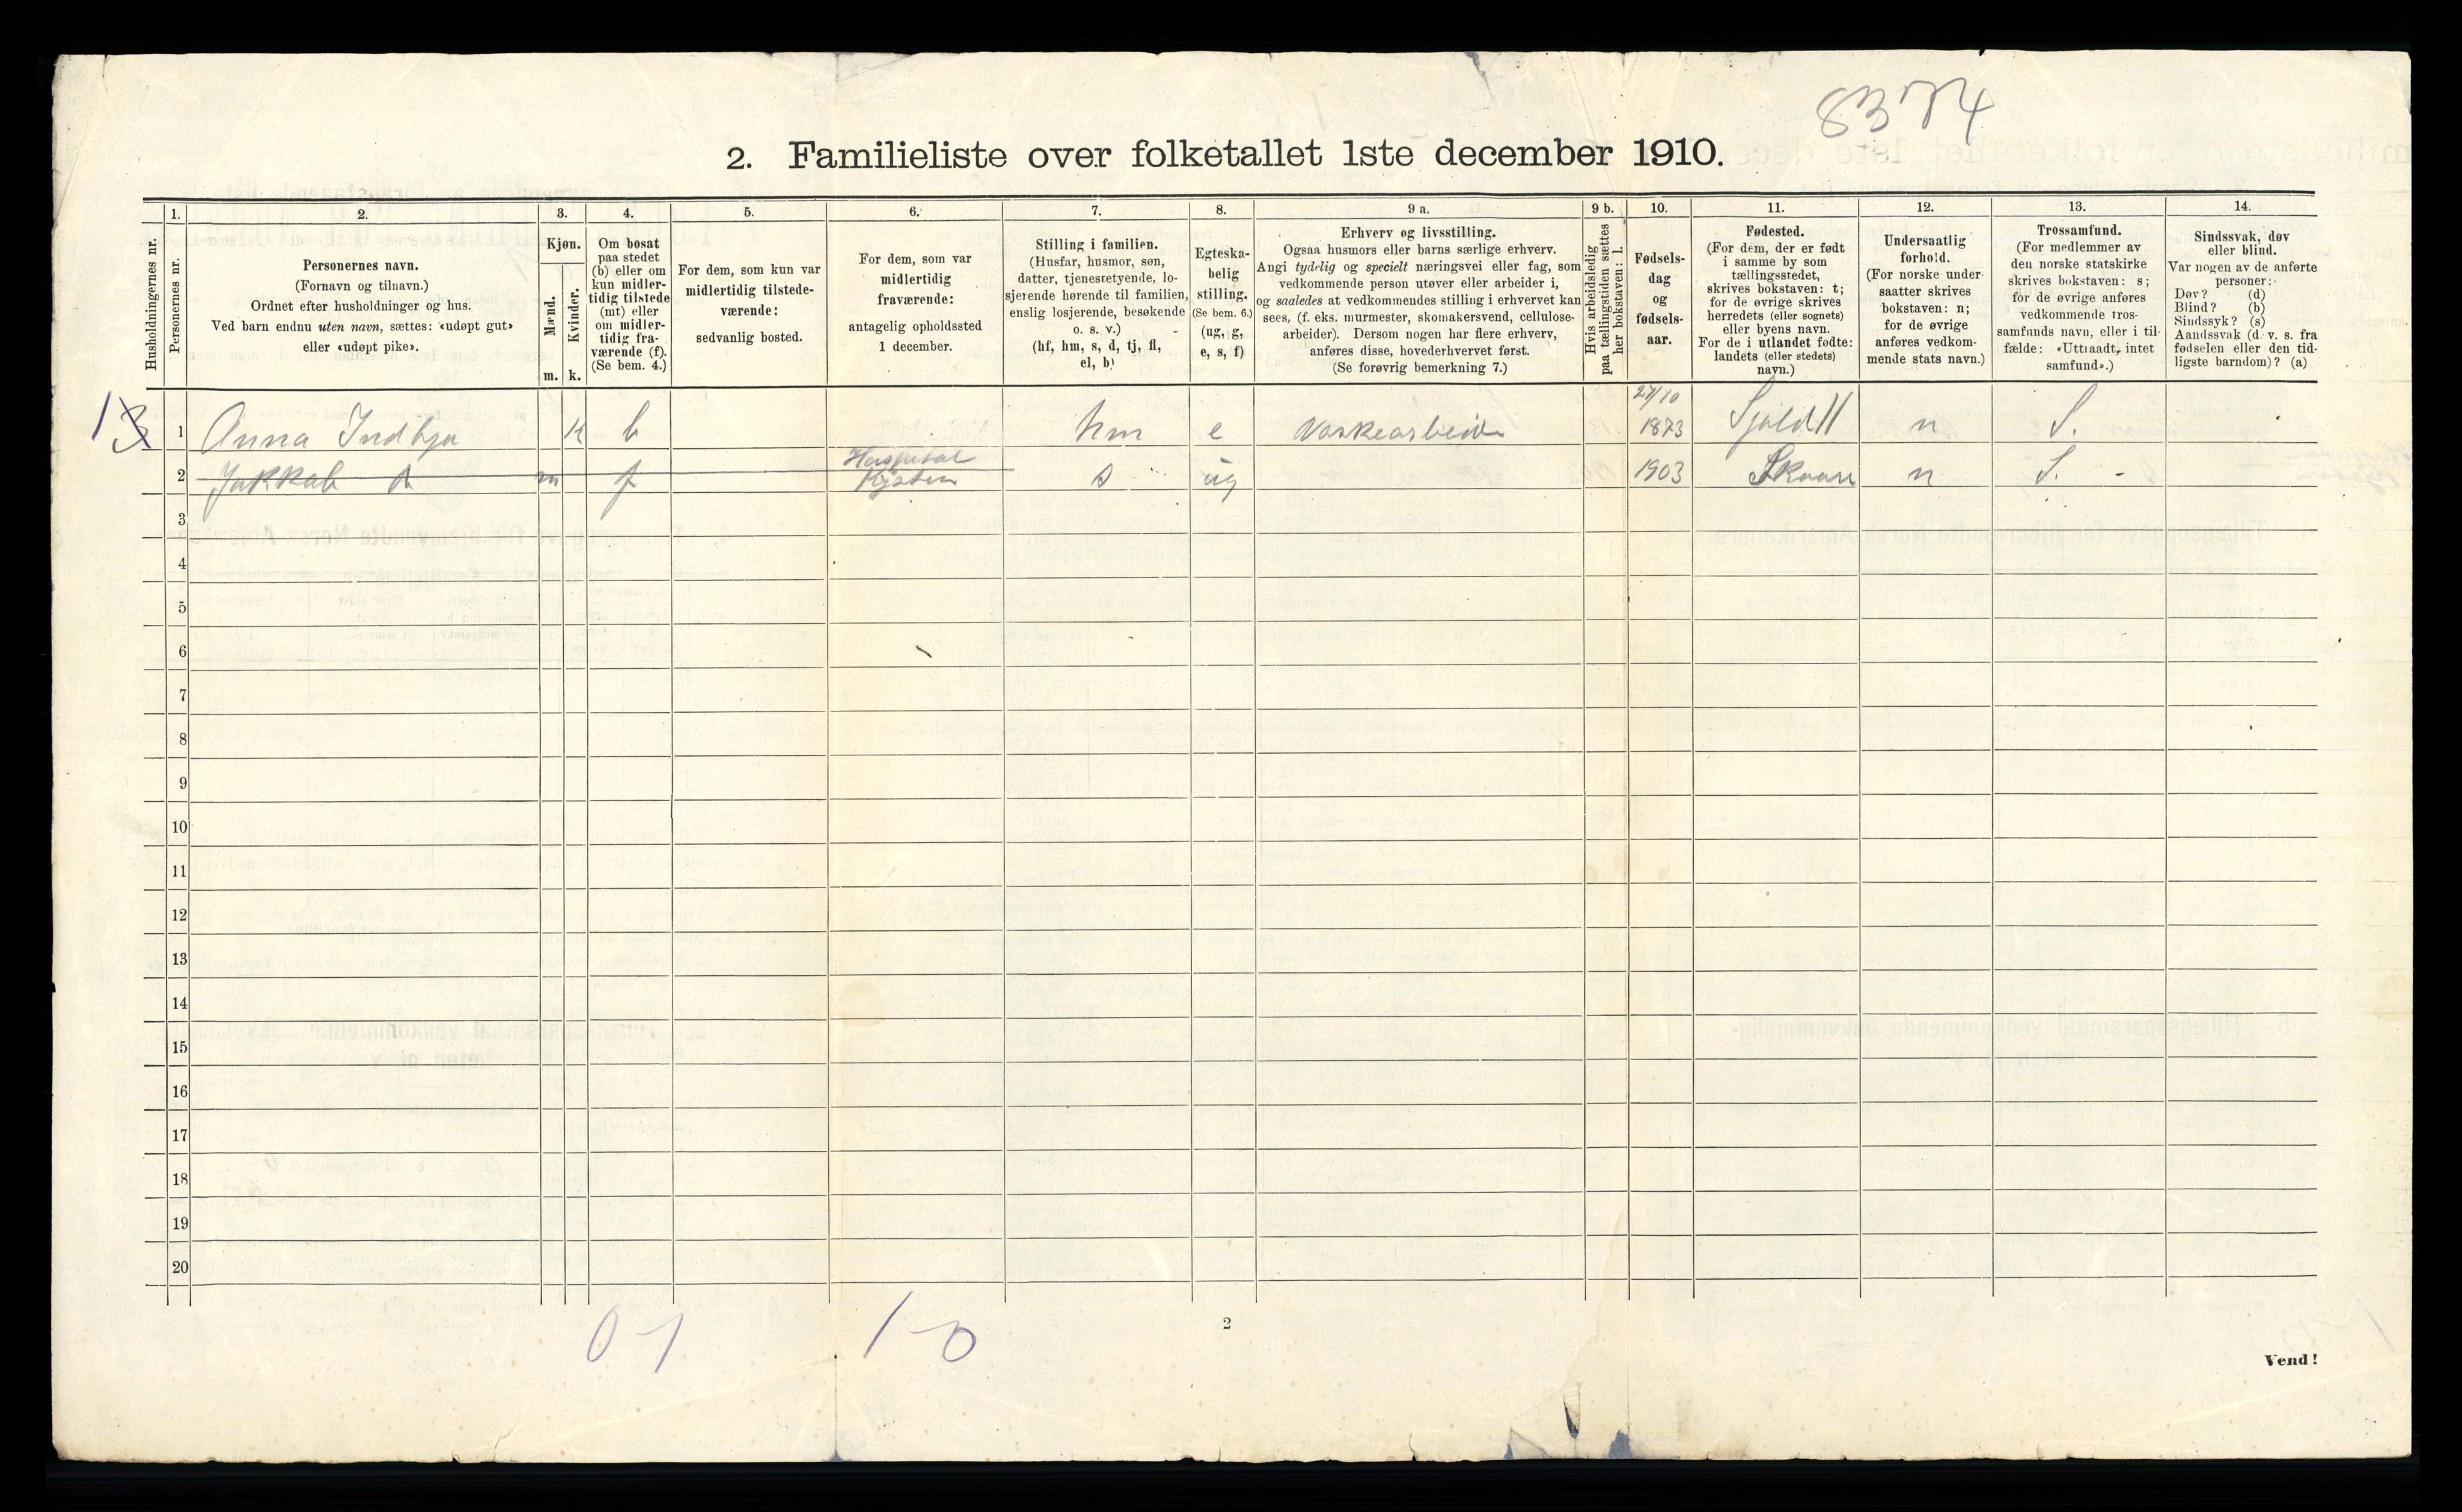 8374
2. Familieliste over folketallet 1ste december 1910.
1. 2. 3. 4. 5. 6. 7. 8. 9 a. 9 b. 10. 11. 12. 13. 14.
Husholdningernes nr.
Personernes nr.
Personernes navn.
(Fornavn og tilnavn.)
Ordnet efter husholdninger og hus.
Ved barn endnu uten navn, sættes: «udøpt gut»
eller «udøpt pike».
Kjøn.
Mænd.
Kvinder.
m. k.
Om bosat
paa stedet
(b) eller om
kun midler-
tidig tilstede
(mt) eller
om midler-
tidig fra-
værende (f).
(Se bem. 4.)
For dem, som kun var
midlertidig tilstede-
værende:
sedvanlig bosted.
For dem, som var
midlertidig
fraværende:
antagelig opholdssted
1 december.
Stilling i familien.
(Husfar, husmor, søn,
datter, tjenestetyende, lo-
sjerende hørende til familien,
enslig losjerende, besøkende
o. s. v.)
(hf, hm, s, d, tj, fl,
el, b)
Egteska-
belig
stilling.
(Se bem. 6.)
(ug, g,
e, s, f)
Erhverv og livsstilling.
Ogsaa husmors eller barns særlige erhverv.
Angi tydelig og specielt næringsvei eller fag, som
vedkommende person utøver eller arbeider i,
og saaledes at vedkommendes stilling i erhvervet kan
sees, (f. eks. murmester, skomakersvend, cellulose-
arbeider). Dersom nogen har flere erhverv,
anføres disse, hovederhvervet først.
(Se forøvrig bemerkning 7.)
Hvis arbeidsledig
paa tællingstiden sættes
her bokstaven: l.
Fødsels-
dag
og
fødsels-
aar.
Fødested.
(For dem, der er født
i samme by som
tællingsstedet,
skrives bokstaven: t;
for de øvrige skrives
herredets (eller sognets)
eller byens navn.
For de i utlandet fødte:
landets (eller stedets)
navn.)
Undersaatlig
forhold.
(For norske under-
saatter skrives
bokstaven: n;
for de øvrige
anføres vedkom-
mende stats navn.)
Trossamfund.
(For medlemmer av
den norske statskirke
skrives bokstaven: s;
for de øvrige anføres
vedkommende tros-
samfunds navn, eller i til-
fælde: «Uttraadt, intet
samfund».)
Sindssvak, døv
eller blind.
Var nogen av de anførte
personer:
Døv? (d)
Blind? (b)
Sindssyk? (s)
Aandssvak (d. v. s. fra
fødselen eller den tid-
ligste barndom)? (a)
1 Anna Indbjo k b hm e Vaskearbeide 27/10 1873 Sjold n S.
2 Jakkob m f Hospital Kysten s ug 1903 Skaare n S. -
3
4
5
6
7
8
9
10
11
12
13
14
15
16
17
18
19
20
0-1 1-0
2
Vend!